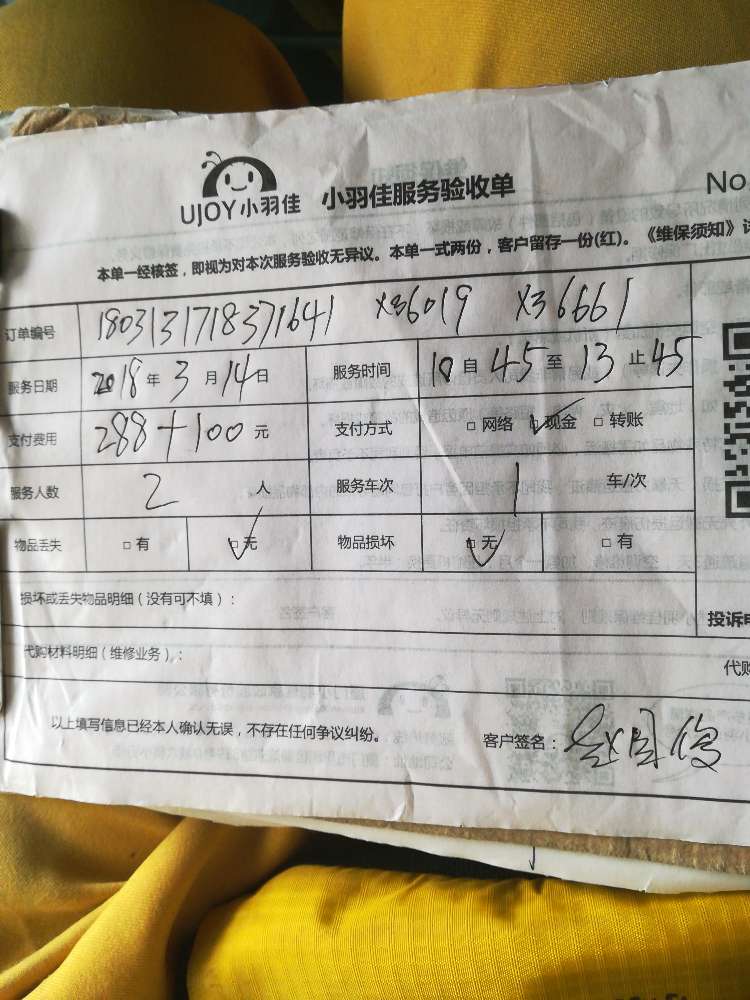 UJOY小羽佳 小羽佳服务验收单 No
本单一经核签，即视为对本次服务验收无异议。本单一式两份，客户留存一份(红)。《维保须知》
订单编号 1803131718371641 X36019 X36661
服务日期 2018年3月14日 服务时间 10自45至13止45
支付费用 288+100元 支付方式 □网络 □现金 □转账
服务人数 2 人 服务车次 1 车/次
物品丢失 □有 □无 物品损坏 □无 □有
损坏或丢失物品明细（没有可不填）： 投诉
代购材料明细（维修业务）： 代购
以上填写信息已经本人确认无误，不存在任何争议纠纷。 客户签名：